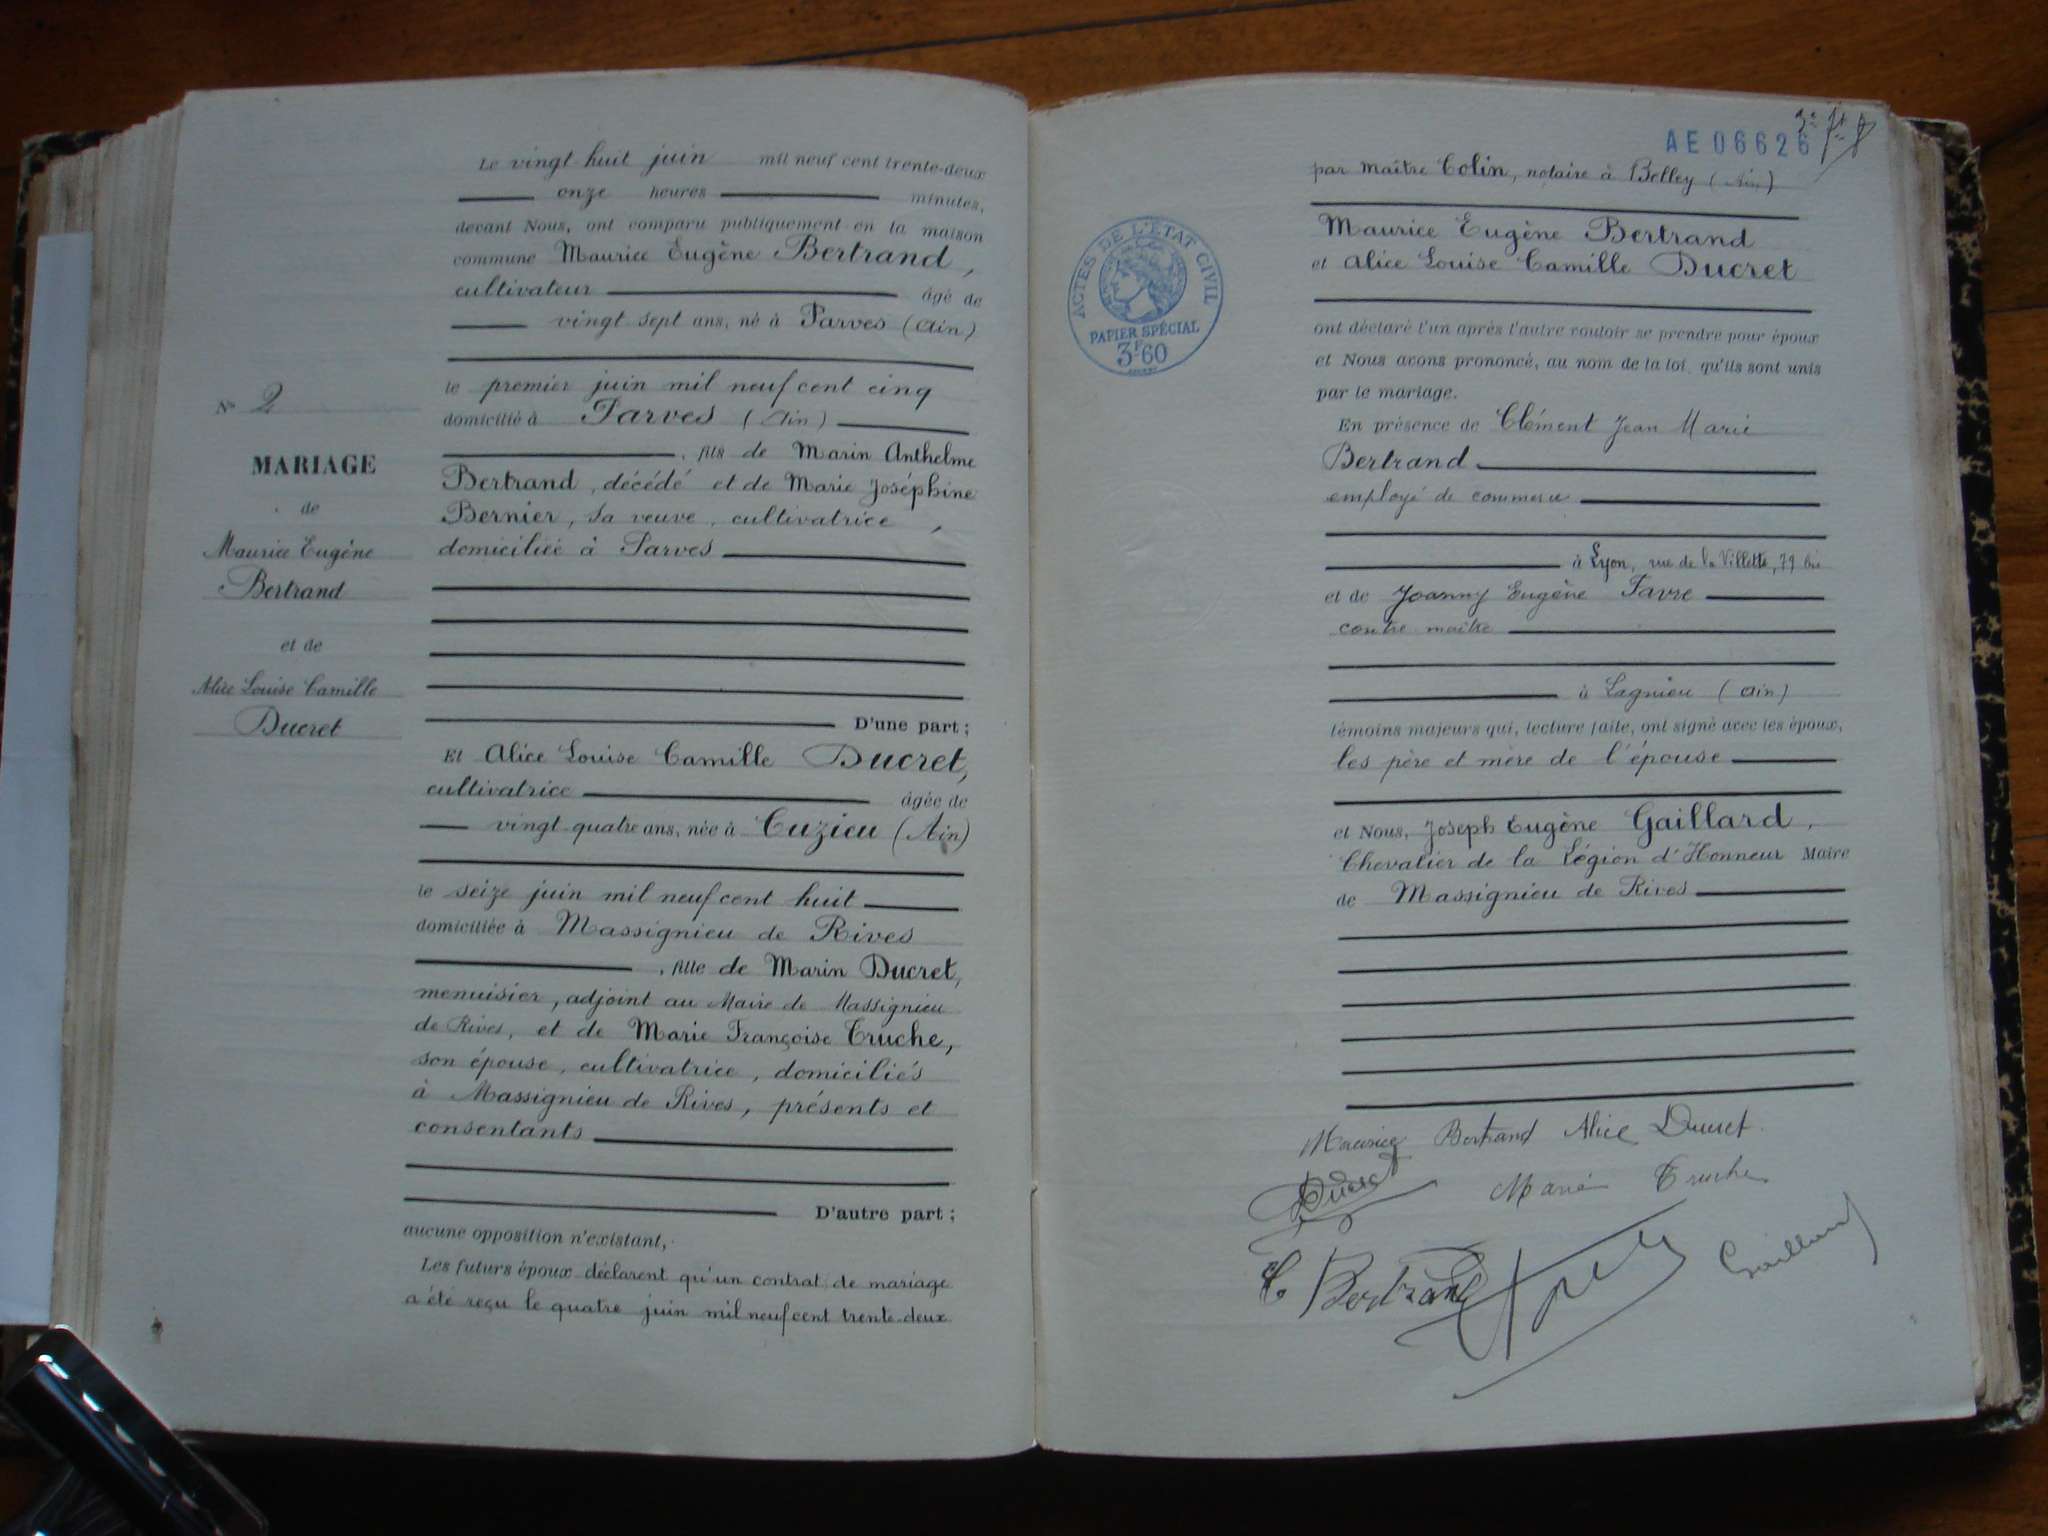 Nº 2
MARIAGE
de
Maurice Eugène
Bertrand
et de
Alice Louise Camille
Ducret
Le vingt-huit juin mil neuf cent trente-deux
onze heures minutes,
devant Nous, ont comparu publiquement en la maison
commune Maurice Eugène Bertrand,
cultivateur âgé de
vingt sept ans, né à Parves (Ain)
le premier juin mil neuf cent cinq
domicilié à Parves (Ain)
, fils de Marin Anthelme
Bertrand, décédé et de Marie Joséphine
Bernier, sa veuve, cultivatrice,
domiciliée à Parves
D'une part;
Et Alice Louise Camille Ducret,
cultivatrice âgée de
vingt-quatre ans, née à Cuzieu (Ain)
le seize juin mil neuf cent huit
domiciliée à Massignieu de Rives
, fille de Marin Ducret,
menuisier, adjoint au Maire de Massignieu
de Rives, et de Marie Françoise Truche,
son épouse, cultivatrice, domiciliés
à Massignieu de Rives, présents et
consentants
D'autre part;
aucune opposition n'existant,
Les futurs époux déclarent qu'un contrat de mariage
a été reçu le quatre juin mil neuf cent trente-deux
AE 06626
par Maître Colin, notaire à Belley (Ain)
ACTES DE L'ÉTAT CIVIL
PAPIER SPÉCIAL
3F60
Maurice Eugène Bertrand
et Alice Louise Camille Ducret
ont déclaré l'un après l'autre vouloir se prendre pour époux
et Nous avons prononcé, au nom de la loi, qu'ils sont unis
par le mariage.
En présence de Clément Jean Marie
Bertrand
employé de commerce
à Lyon, rue de la Villette, 79 bis
et de Joanny Eugène Favre
contre-maître
à Lagnieu (Ain)
témoins majeurs qui, lecture faite, ont signé avec les époux,
les père et mère de l'épouse
et Nous, Joseph Eugène Gaillard,
Chevalier de la Légion d'Honneur Maire
de Massignieu de Rives
Maurice Bertrand Alice Ducret
Ducret Marie Truche
C Bertrand Gaillard